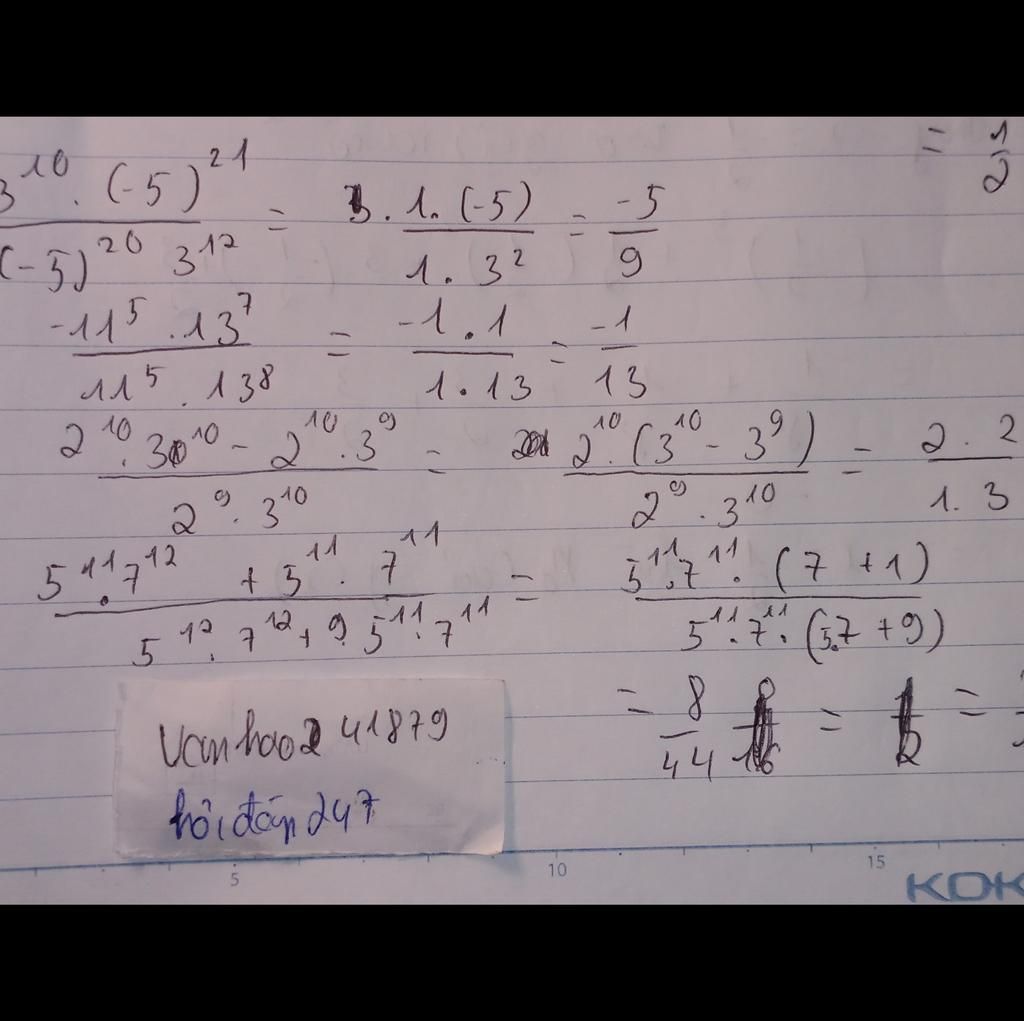 = 1/2
3^10 . (-5)^21 / (-5)^20 3^12 = 1 . (-5) / 1 . 3^2 = -5/9
-11^5 . 13^7 / 11^5 . 13^8 = -1 . 1 / 1 . 13 = -1/13
2^10 . 3^10 - 2^10 . 3^9 / 2^9 . 3^10 = 2^10 . (3^10 - 3^9) / 2^9 . 3^10 = 2 . 2 / 1 . 3
5^11 . 7^12 + 5^11 . 7^11 / 5^12 . 7^12 + 9 . 5^11 . 7^11 = 5^11 . 7^11 . (7 + 1) / 5^11 . 7^11 . (5.7 + 9)
= 8/44 = =
vanhao241879
hỏi đáp 247
5 10 15
KOK